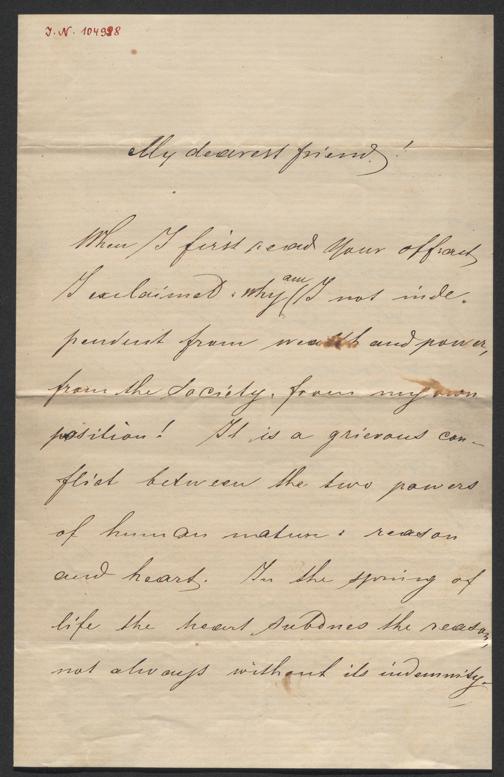 I. N. 104998
My dearest friend!
When I first read Your offract
I exclaimed: why am I not inde-
pendent from wealth and power,
from the society, from my own
position! It is a grievous con-
flict between the two powers
of human nature: reason
and heart. In the spring of
life the heart subdues the reason,
not always without its indemnity.